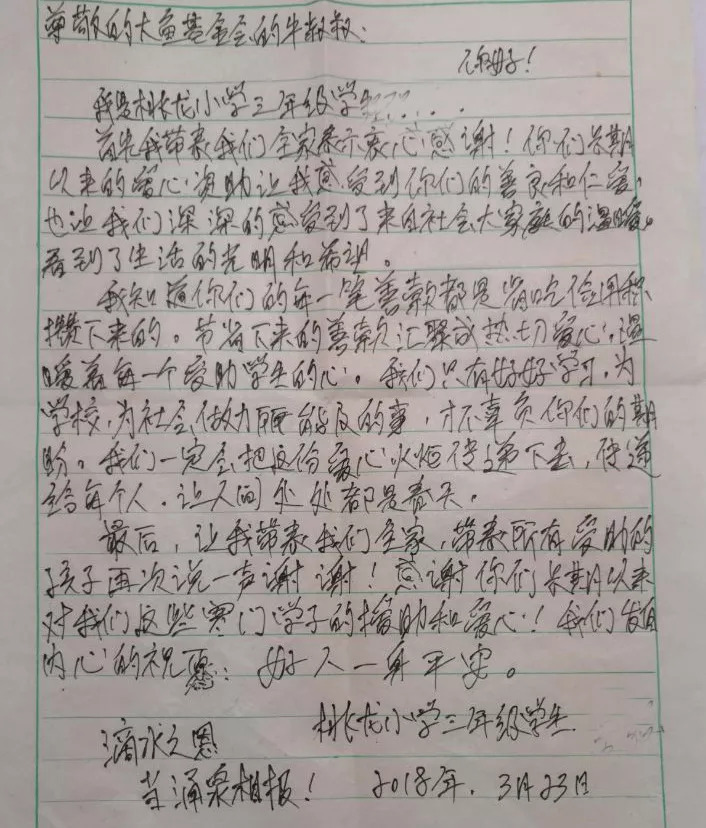 尊敬的大鱼基金会的牛叔叔:
你好!
我是桃龙小学三年级学生
首先我带表我们全家表示衷心感谢!你们长期
以来的爱心资助让我感受到你们的善良和仁爱,
也让我们深深的感受到了来自社会大家庭的温暖。
看到了生活的光明和希望。
我知道你们的每一笔善款都是省吃俭用积
攒下来的。节省下来的善款汇聚成热切爱心,温
暖着每一个受助学生的心。我们只有好好学习,为
学校,为社会做力所能及的事,才不辜负你们的期
盼。我们一定会把这份爱心火炬传递下去,传递
给每个人,让人间处处都是春天。
最后,让我带表我们全家,带表所有受助的
孩子再次说一声谢谢!感谢你们长期以来
对我们这些寒门学子的援助和爱心!我们发自
内心的祝愿:好人一身平安。
桃龙小学三年级学生
滴水之恩
当涌泉相报!
2018年.3月23日